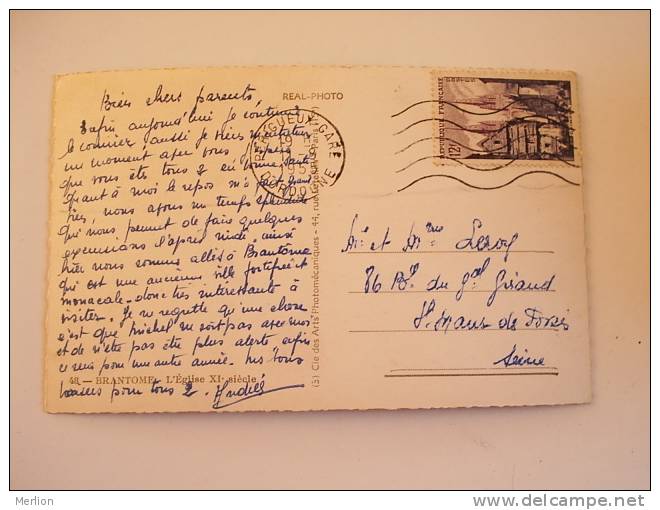 Bien chers parents,
Enfin aujourd'hui je continue
le courrier aussi je viens
un moment avec vous j'espère
que vous êtes tous 2 en bonne santé
quant à moi le repos m'a fait grand
bien, nous avons un temps splendide
qui nous permet de faire quelques
excursions l'après midi, ainsi
hier nous sommes allés à Brantôme
qui est une ancienne ville fortifiée et
monacale - donc très intéressante à
visiter. Je ne regrette qu'une chose
c'est que Michel ne soit pas avec moi
et de n'être pas plus alerte enfin
ce sera pour une autre année. mes bons
48 — BRANTOME - L'Église XIe siècle
baisers pour tous 2. Andrée
REAL-PHOTO
(S) Cie des Arts Photomécaniques - 44, rue Paris
PERIGUEUX GARE
DORDOGNE
POSTES
REPUBLIQUE FRANÇAISE
12F
Mr et Mme Leroy
86 Bd du Gal Giraud
St Maur des Fossés
Seine
Merlion
www.delcampe.net